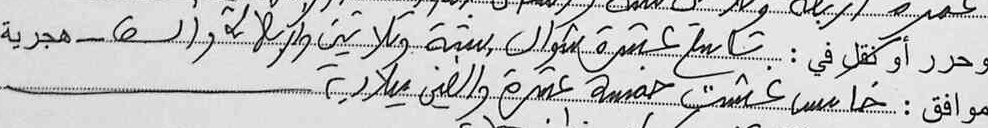 وحرر أو نقل في : تاسع عشرة شوال ستة وثلاثين وأربعمائة وألف هجرية
موافق : خامس غشت خمسة عشرة وألفين ميلادية